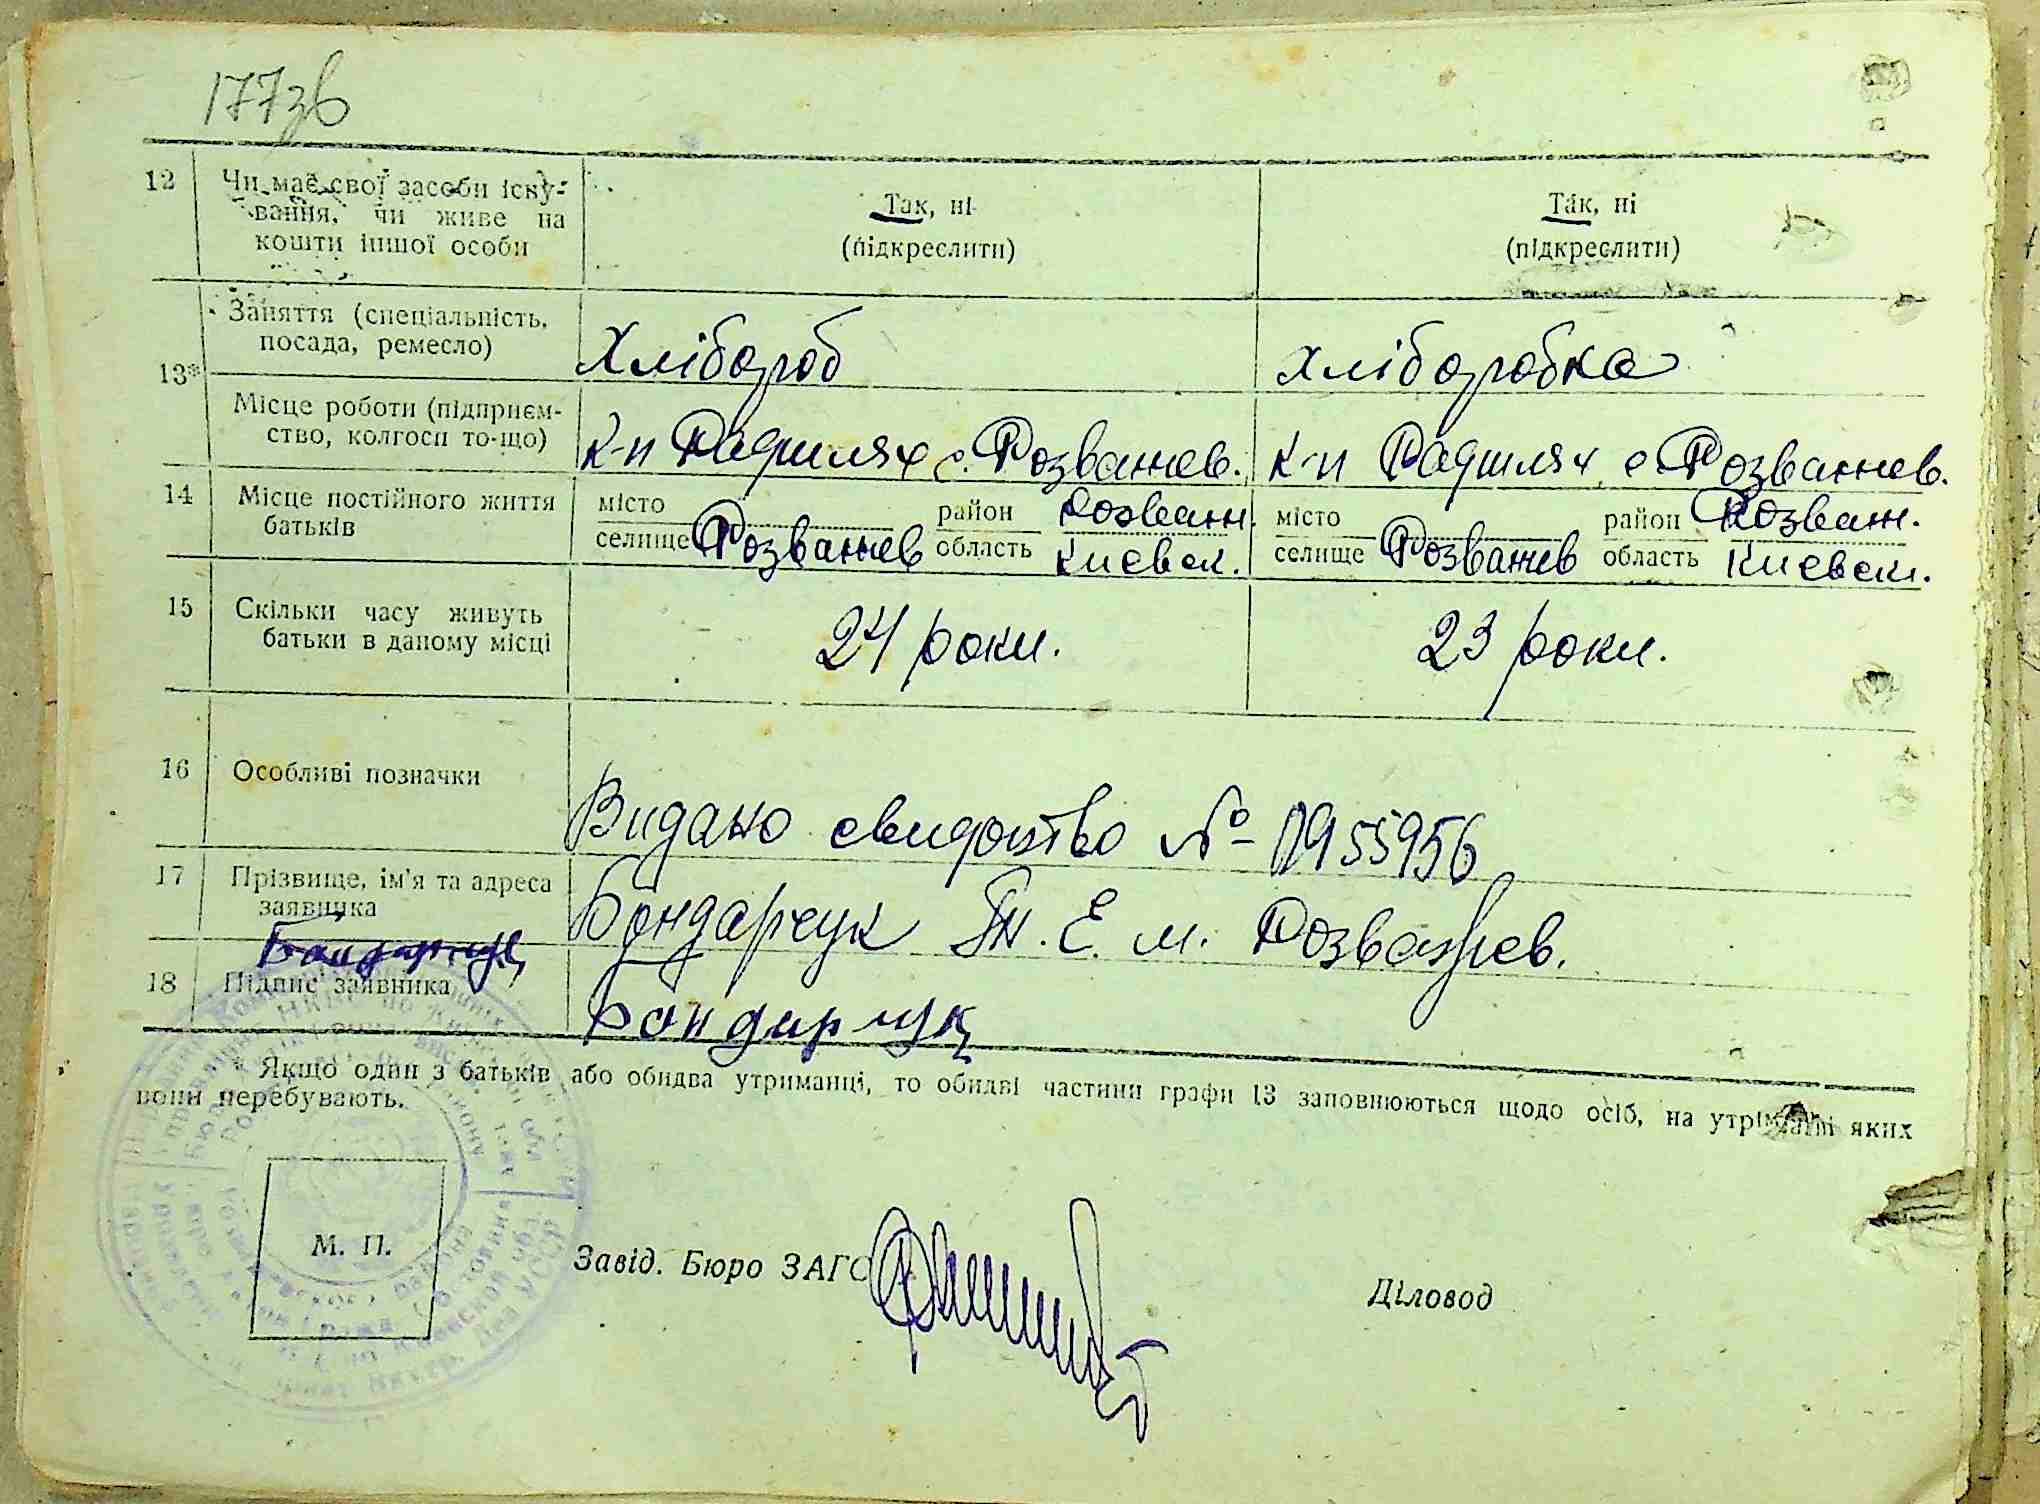 177зв
12 Чи має свої засоби існу-
вання, чи живе на
кошти іншої особи
Так, ні
(підкреслити)
Так, ні
(підкреслити)
13*
Заняття (спеціальність,
посада, ремесло)
Хлібороб
хліборобка
Місце роботи (підприєм-
ство, колгосп то-що)
к-п Радшлях с. Розважев.
к-п Радшлях с Розважев.
14 Місце постійного життя
батьків
місто
селище Розважев
район Розваж.
область Києвск.
місто
селище Розважев
район Розваж.
область Києвск.
15 Скільки часу живуть
батьки в даному місці
24 роки.
23 роки.
16 Особливі позначки
Видано свидоцтво № 0955956
17 Прізвище, ім'я та адреса
заявника
Бондарчук Е. м. Розважев.
Бондарчук
18 Підпис заявника
Бондарчук
* Якщо один з батьків або обидва утриманці, то обидві частини графи 13 заповнюються щодо осіб, на утриманні яких
вони перебувають.
М. П.
Завід. Бюро ЗАГС
Діловод